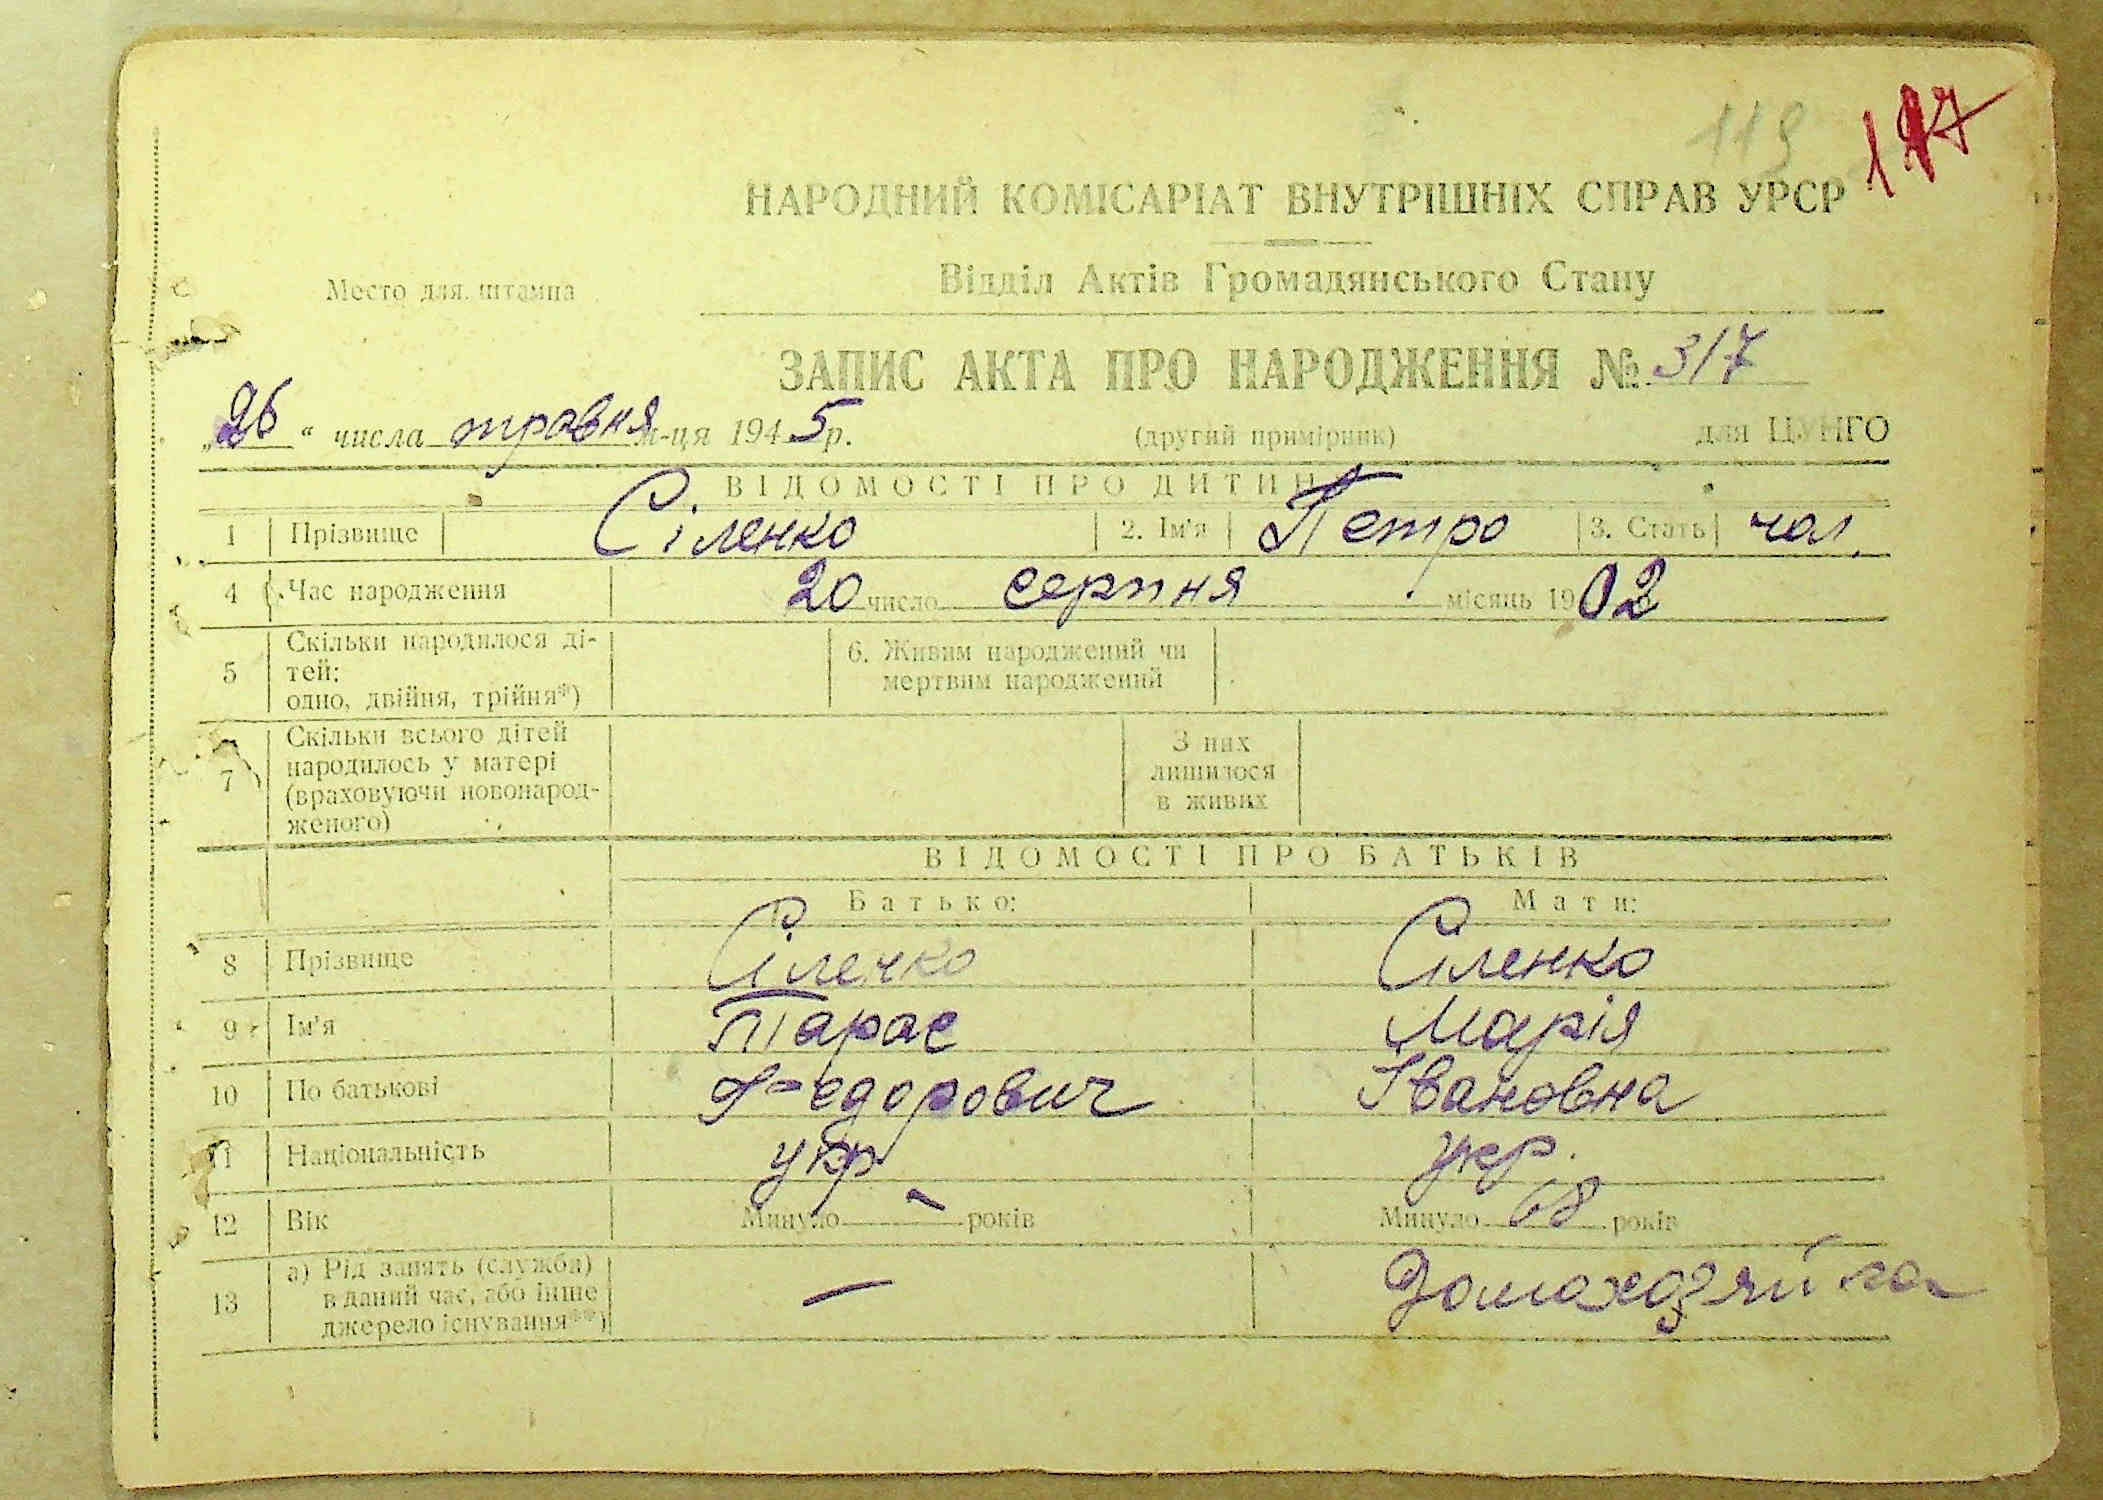 119 117
НАРОДНИЙ КОМІСАРІАТ ВНУТРІШНІХ СПРАВ УРСР
Место для штампа
Відділ Актів Громадянського Стану
ЗАПИС АКТА ПРО НАРОДЖЕННЯ № 317
„26“ числа травня м-ця 1945 р. (другий примірник) для ЦУНГО
ВІДОМОСТІ ПРО ДИТИНУ
1 Прізвище Сіленко 2. Ім'я Петро 3. Стать чол.
4 Час народження 20 число серпня місяць 1902
5 Скільки народилося ді-
тей:
одно, двійня, трійня*)
6. Живим народжений чи
мертвим народжений
7 Скільки всього дітей
народилось у матері
(враховуючи новонарод-
женого)
З них
лишилося
в живих
ВІДОМОСТІ ПРО БАТЬКІВ
Батько: Мати:
8 Прізвище Сіленко Сіленко
9 Ім'я Тарас Марія
10 По батькові Федорович Івановна
11 Національність укр укр.
12 Вік Минуло – років Минуло 68 років
13 а) Рід занять (служба)
в даний час, або інше
джерело існування**)
– Домохозяйка